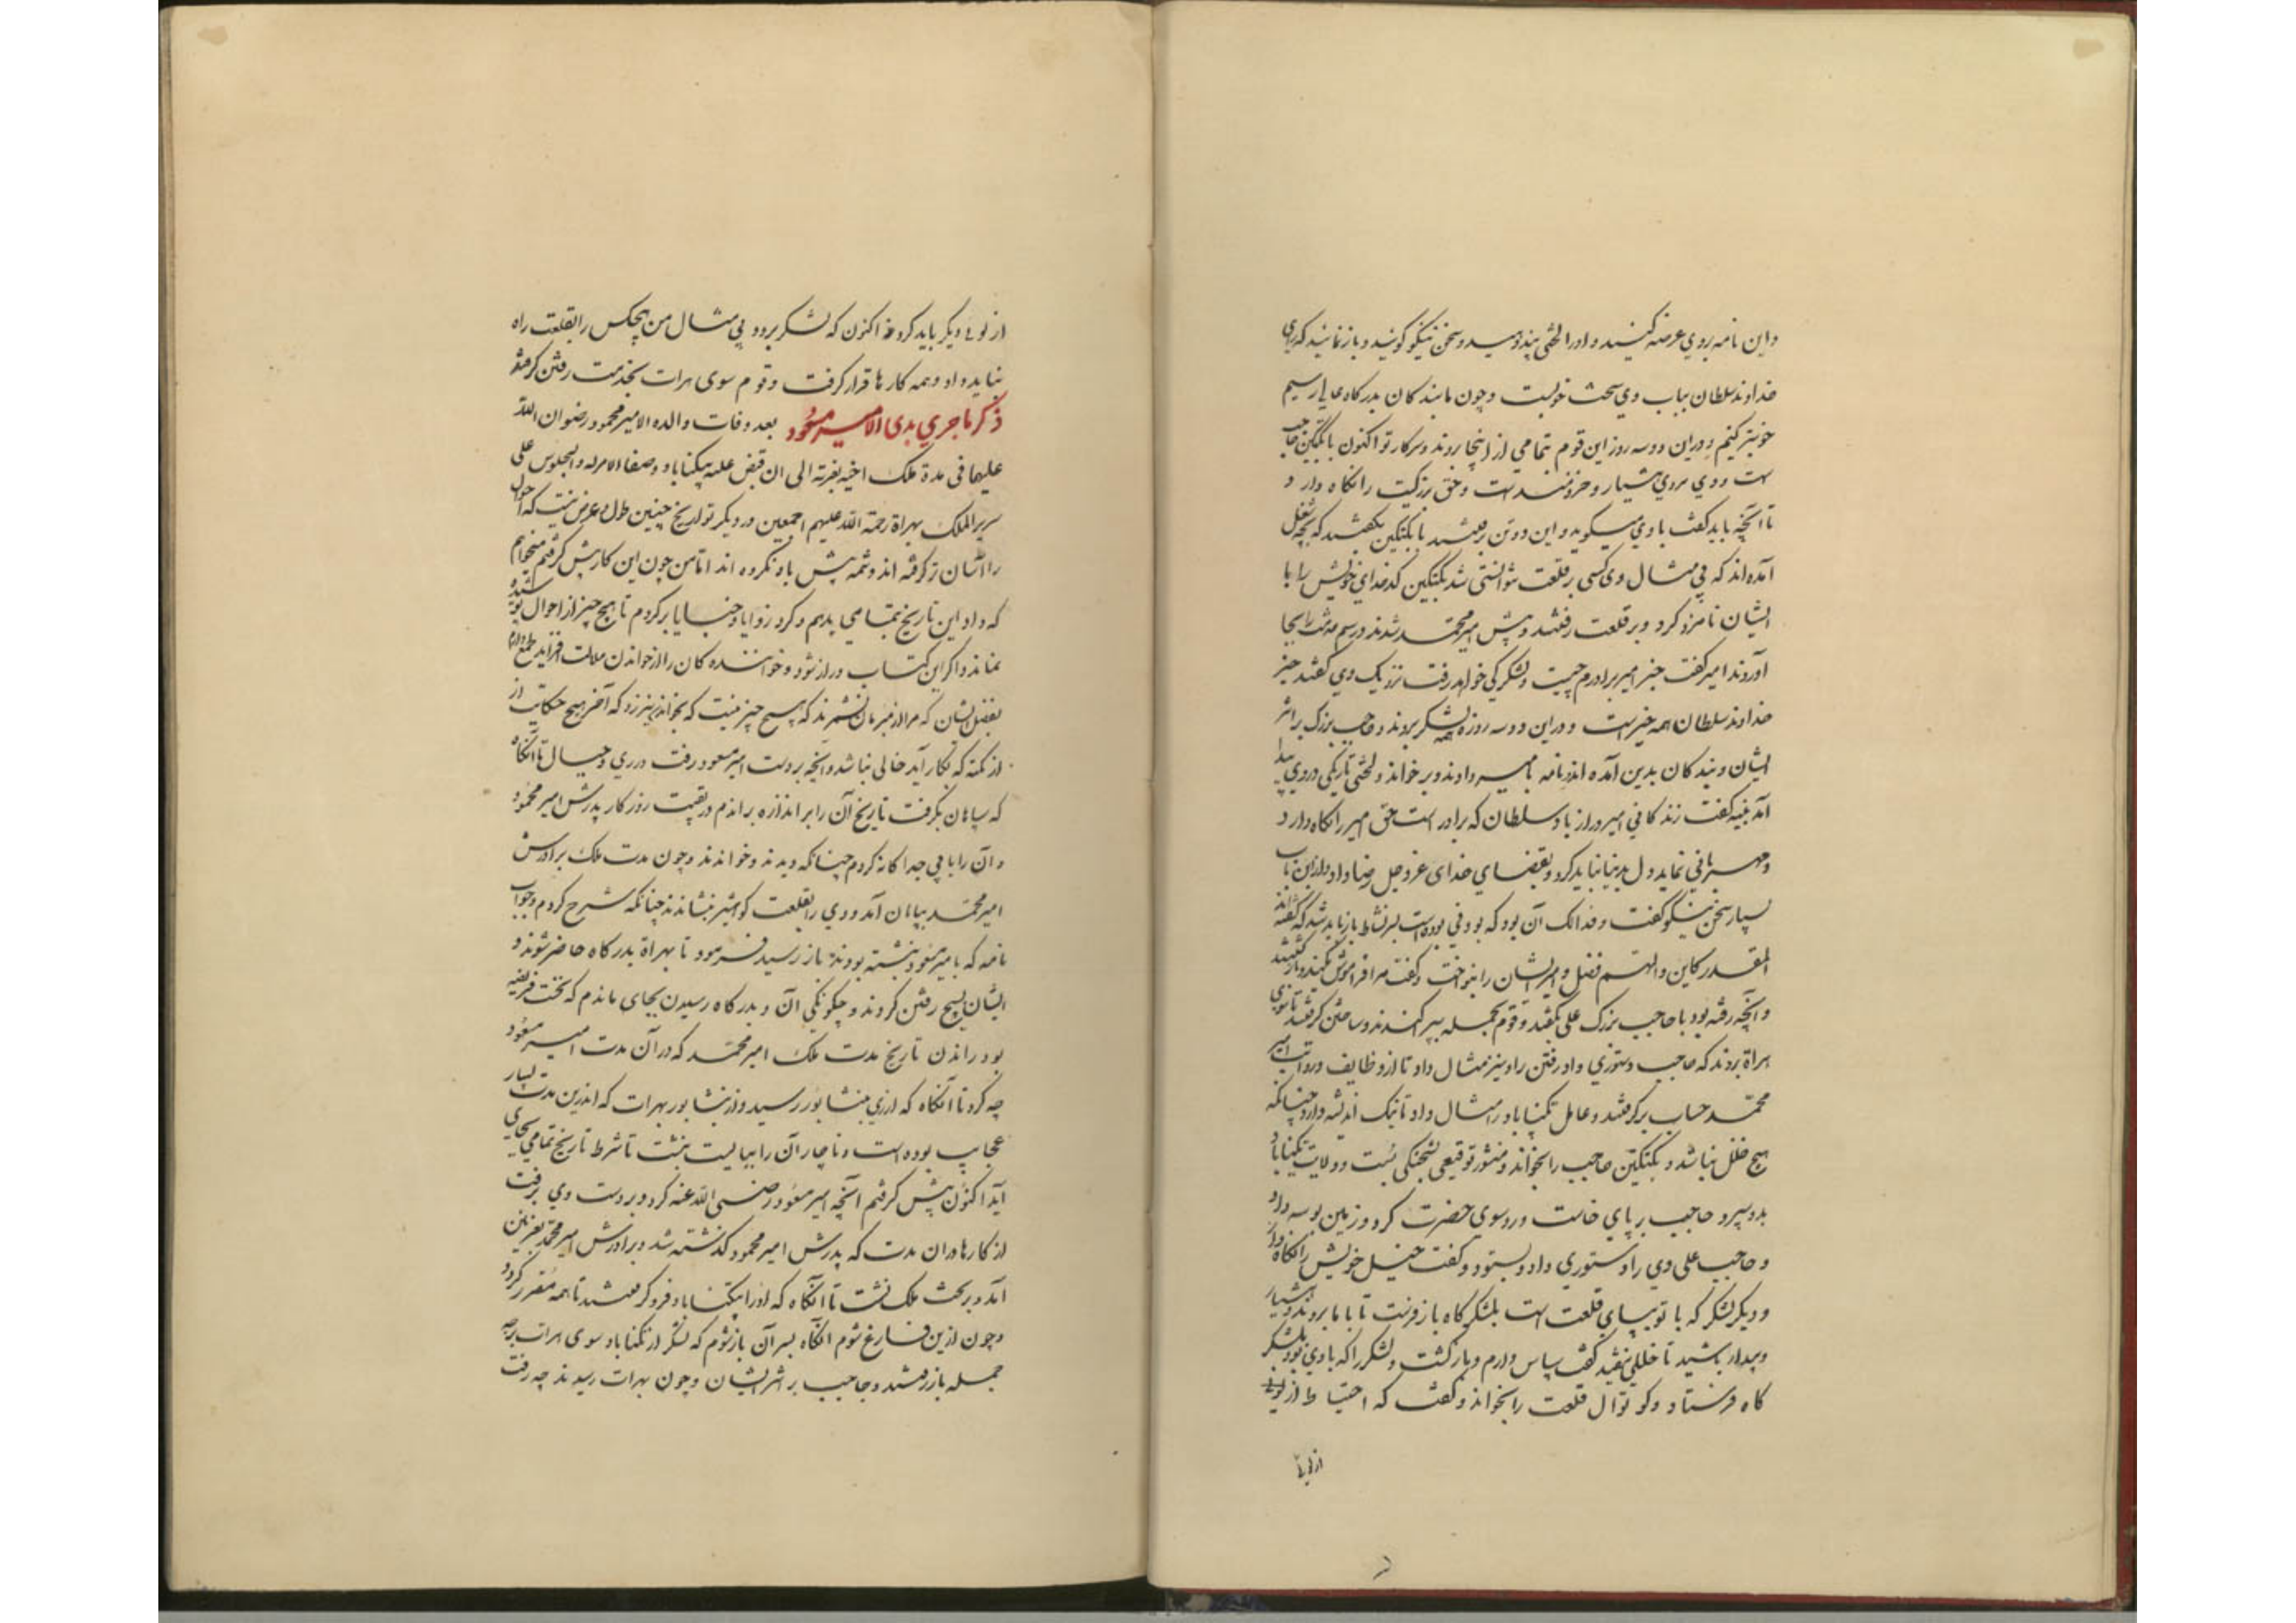 و این نامه بروی عرضه کنید و او را لختی پند دهید و سخن نیکو گویید و باز نمائید که رای
خداوند سلطان بباب وی سخت خوبست و چون ما بندگان بدرگاه عالی رسیم
خوبتر کنیم و درین دو سه روز این قوم بتمامی از اینجا بروند و سرکار تو اکنون با بکتگین حاجب
است و وی مردی هشیار و خردمند است و حق بزرگیت را نگاه دارد
تا آنچه باید گفت با وی میگوید و این دو تن برفتند با بکتگین بگفتند که بچه شغل
آمده‌اند که بی مثال وی کسی بر قلعت نتوانستی شد بکتگین کدخدای خویش را با
ایشان نامزد کرد و بر قلعت رفتند و پیش امیر محمد شدند و رسم خدمت را بجا
آوردند امیر گفت خبر امیر برادرم چیست و لشکر کی خواهد رفت نزدیک وی گفتند خبر
خداوند سلطان همه خیر است و درین دو سه روز همه لشکر بروند و حاجب بزرگ بر اثر
ایشان و بندگان بدین آمده‌اند و نامه بامیر دادند و بر خواند و لختی تاریکی در وی پیدا
آمد نبیه گفت زندگانی امیر دراز باد سلطان که برادر است حق امیر را نگاه دارد
و مهربانی نماید دل بد نباید کرد و بقضای خدای عز و جل رضا داد و ازین باب
بسیار سخن نیکو گفت و فذلک آن بود که بودنی بوده است بسر نشاط باز باید شد که گفته‌اند
المقدر کاین و الهم فضل و امیر ایشان را بنواخت و گفت مرا فراموش مکنید و بازگشتند
و آنچه رفته بود با حاجب بزرگ علی بگفتند و قوم بجمله بپراگندند و ساختن گرفتند تا سوی
هراة بروند که حاجب دستوری داد رفتن را و نیز مثال داد تا از وظایف و رواتب امیر
محمد حساب برگرفتند و عامل تگیناباد را مثال داد تا نیک اندیشه دارد چنانکه
هیچ خلل نباشد و بکتگین حاجب را بخواند و منشور توقیعی بشحنگی بست و ولایت تگیناباد
بدو سپرد حاجب بر پای خاست و روسوی حضرت کرد و زمین بوسه داد
و حاجب علی وی را دستوری داد و بستود و گفت خیل خویش را نگاه دار
و دیگر لشکر که با تو بپای قلعت است بلشکرگاه باز فرست تا با ما بروند و هشیار
و بیدار باشید تا خللی نیفتد گفت سپاس دارم و بازگشت و لشکر را که با وی بود بلشکر
گاه فرستاد و کوتوال قلعت را بخواند و گفت که احتیاط از لونی
از لونی
از لونی دیگر باید کرد اکنون که لشکر برود و بی مثال من هیچکس را بقلعت راه
نباید داد و همه کارها قرار گرفت و قوم سوی هرات بخدمت رفتن گرفتند
ذکر ماجری بدی الامیر مسعود بعد وفات والده الامیر محمود رضوان الله
علیهما فی مدة ملک اخیه بغزنه الی ان قبض علیه بتگیناباد و صفا الامر له و الجلوس علی
سریر الملک بهراة رحمة الله علیهم اجمعین در دیگر تواریخ چنین طول و عرض نیست که احوال
را آسان‌تر گرفته‌اند و شمه بیش یاد نکرده‌اند اما من چون این کار پیش گرفتم میخواهم
که داد این تاریخ بتمامی بدهم و گرد زوایا و خبایا برگردم تا هیچ چیز از احوال پوشیده
نماند و اگر این کتاب دراز شود و خوانندگان را از خواندن ملالت افزاید طمع دارم
بفضل ایشان که مرا از مبرمان نشمرند که هیچ چیز نیست که بخواندن نیرزد که آخر هیچ حکایت از
از نکته که بکار آید خالی نباشد و آنچه بر دست امیر مسعود رفت در ری و جبال تا آنگاه
که سپاهان بگرفت تاریخ آن را بر اندازه براندم در بقیت روزگار پدرش امیر محمود
و آن را بابی جداگانه کردم چنانکه دیدند و خواندند و چون مدت ملک برادرش
امیر محمد بپایان آمد و وی را بقلعت کوهتیز نشاندند چنانکه شرح کردم و جواب
نامه که بامیر مسعود نبشته بودند باز رسید فرمود تا بهراة بدرگاه حاضر شوند و
ایشان بسیج رفتن کردند و چگونگی آن و بدرگاه رسیدن بجای ماندم که نخست فریضه
بود راندن تاریخ مدت ملک امیر محمد که در آن مدت امیر مسعود
چه کرد تا آنگاه که از ری بنشابور رسید و از نشابور بهرات که اندرین مدت بسیار
عجایب بوده است و ناچار آن را ببایست نبشت تا شرط تاریخ بتمامی بجای
آید اکنون پیش گرفتم آنچه امیر مسعود رضی الله عنه کرد و بر دست وی برفت
از کارها در آن مدت که پدرش امیر محمود گذشته شد و برادرش امیر محمد بغزنین
آمد و بر تخت ملک نشست تا آنگاه که او را بتگیناباد فرو گرفتند تا همه مقرر گردد
و چون ازین فارغ شوم آنگاه بسر آن باز شوم که لشکر از تگیناباد سوی هرات بر چه
جمله باز رفتند و حاجب بر اثر ایشان و چون بهرات رسیدند چه رفت